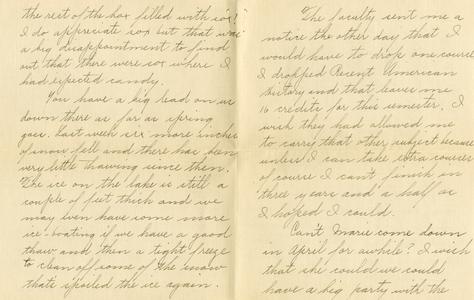 the rest of the box filled with sox!
I do appreciate sox but that was
a big disappointment to find
out that there were sox where I
had expected candy.
You have a big lead on us
down there as far as spring
goes. Last week six more inches
of snow fell and there has been
very little thawing since then.
The ice on the lake is still a
couple of feet thick and we
may even have some more
ice boating if we have a good
thaw and then a tight freeze
to clean off some of the snow
thats spoiled the ice again.
The faculty sent me a
notice the other day that I
would have to drop one course
I dropped Recent American
History and that leaves me
16 credits for this semester. I
wish they had allowed me
to carry that other subject because
unless I can take extra courses
of course I can't finish in
three years and a half as
I hoped I could.
Can't Marie come down
in April for awhile? I wish
that she could we could
have a big party with the